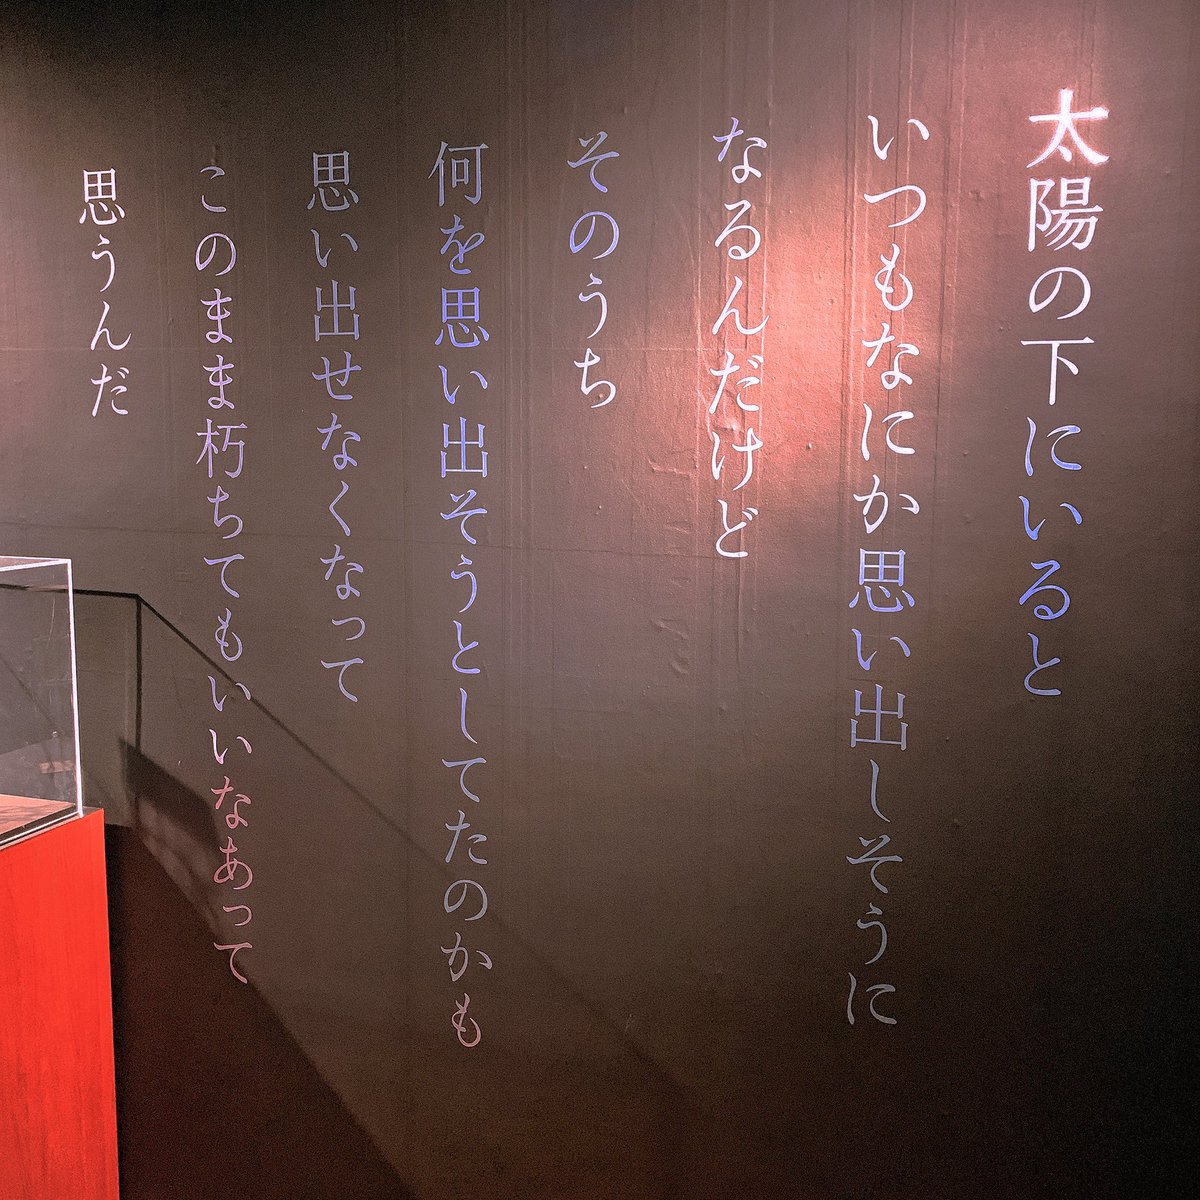 太陽の下にいると
いつもなにか思い出しそうに
なるんだけど
そのうち
何を思い出そうとしてたのかも
思い出せなくなって
このまま朽ちてもいいなあって
思うんだ